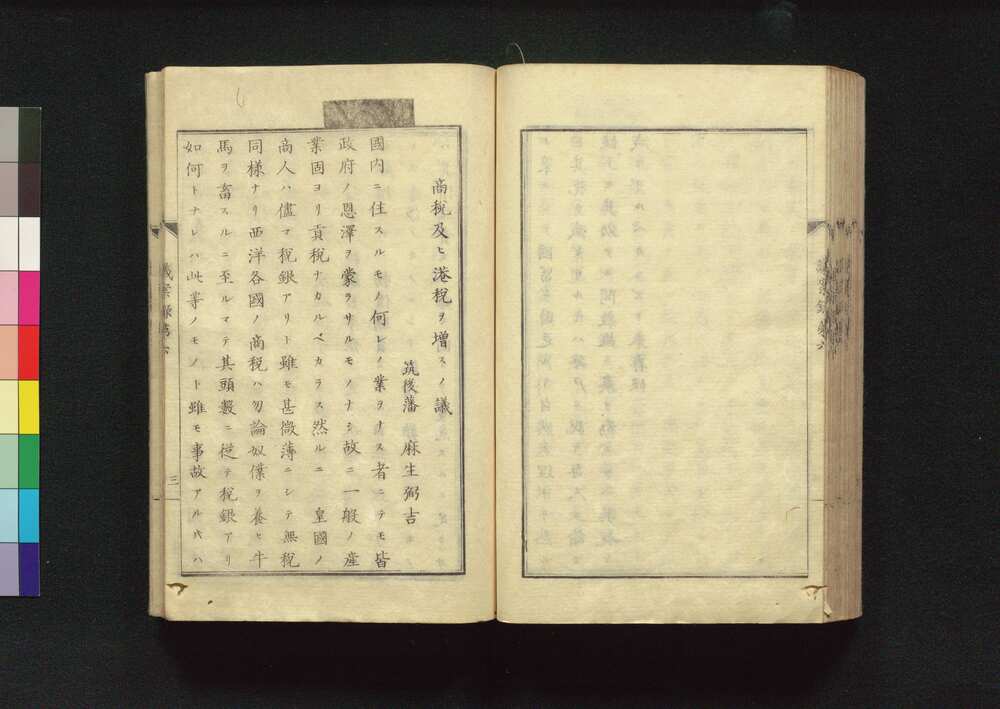 商稅及ヒ港稅ヲ增スノ議
筑後藩 麻生弼吉
國内ニ住スルモノ何レノ業ヲナス者ニテモ皆
政府ノ恩澤ヲ蒙ラサルモノナシ故ニ一般ノ産
業固ヨリ貢稅ナカルベカラス然ルニ 皇國ノ
商人ハ儘マ稅銀アリト雖モ甚微薄ニシテ無稅
同樣ナリ西洋各國ノ商稅ハ勿論奴僕ヲ養ヒ牛
馬ヲ畜スルニ至ルマテ其頭數ニ從テ稅銀アリ
如何トナレハ此等ノモノト雖モ事故アル代ハ
議案錄第六
三
議案錄第六